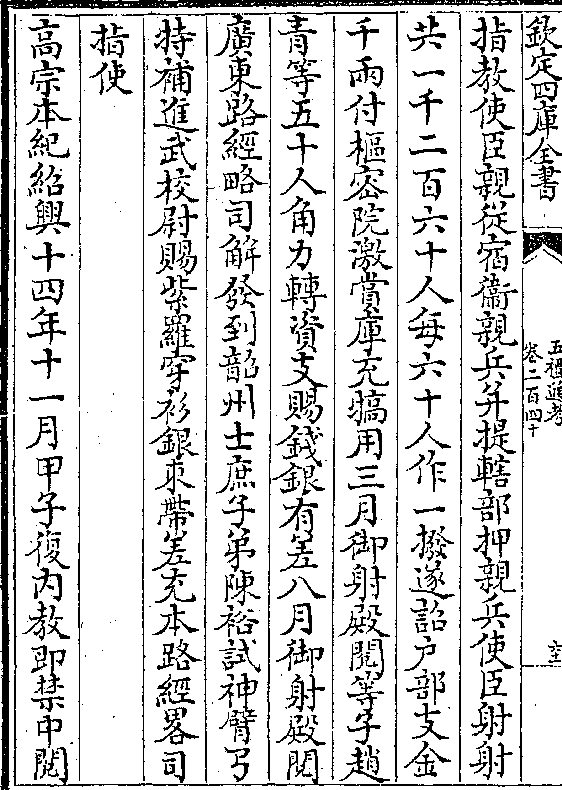 欽定四庫全書
五禮通考
卷二百四十
六十二
指教使臣親從宿衛親兵并提轄部押親兵使臣射射
共一千二百六十人每六十人作一撥遂詔户部支金
千兩付樞密院激賞庫充犒用三月御射殿閱等子趙
青等五十人角力轉資支賜錢銀有差八月御射殿閱
廣東路經略司解發到韶州士庶子弟陳裕試神臂弓
特補進武校尉賜紫羅窄衫銀束帶差充本路經畧司
指使
高宗本紀紹興十四年十一月甲子復内教即禁中閱